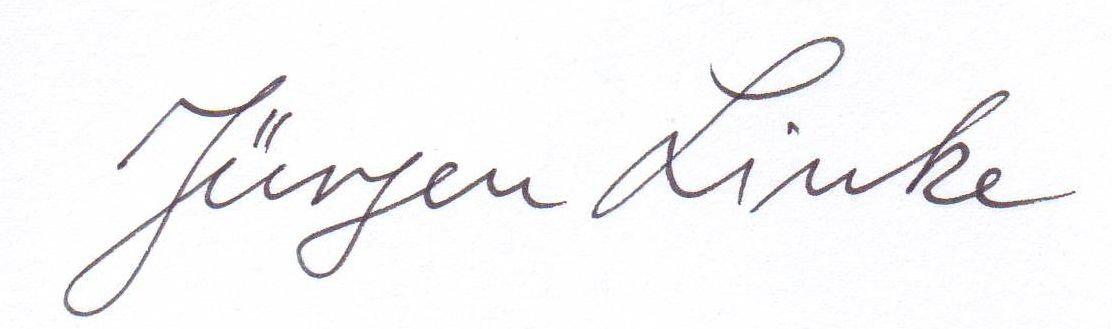 Jürgen Linke